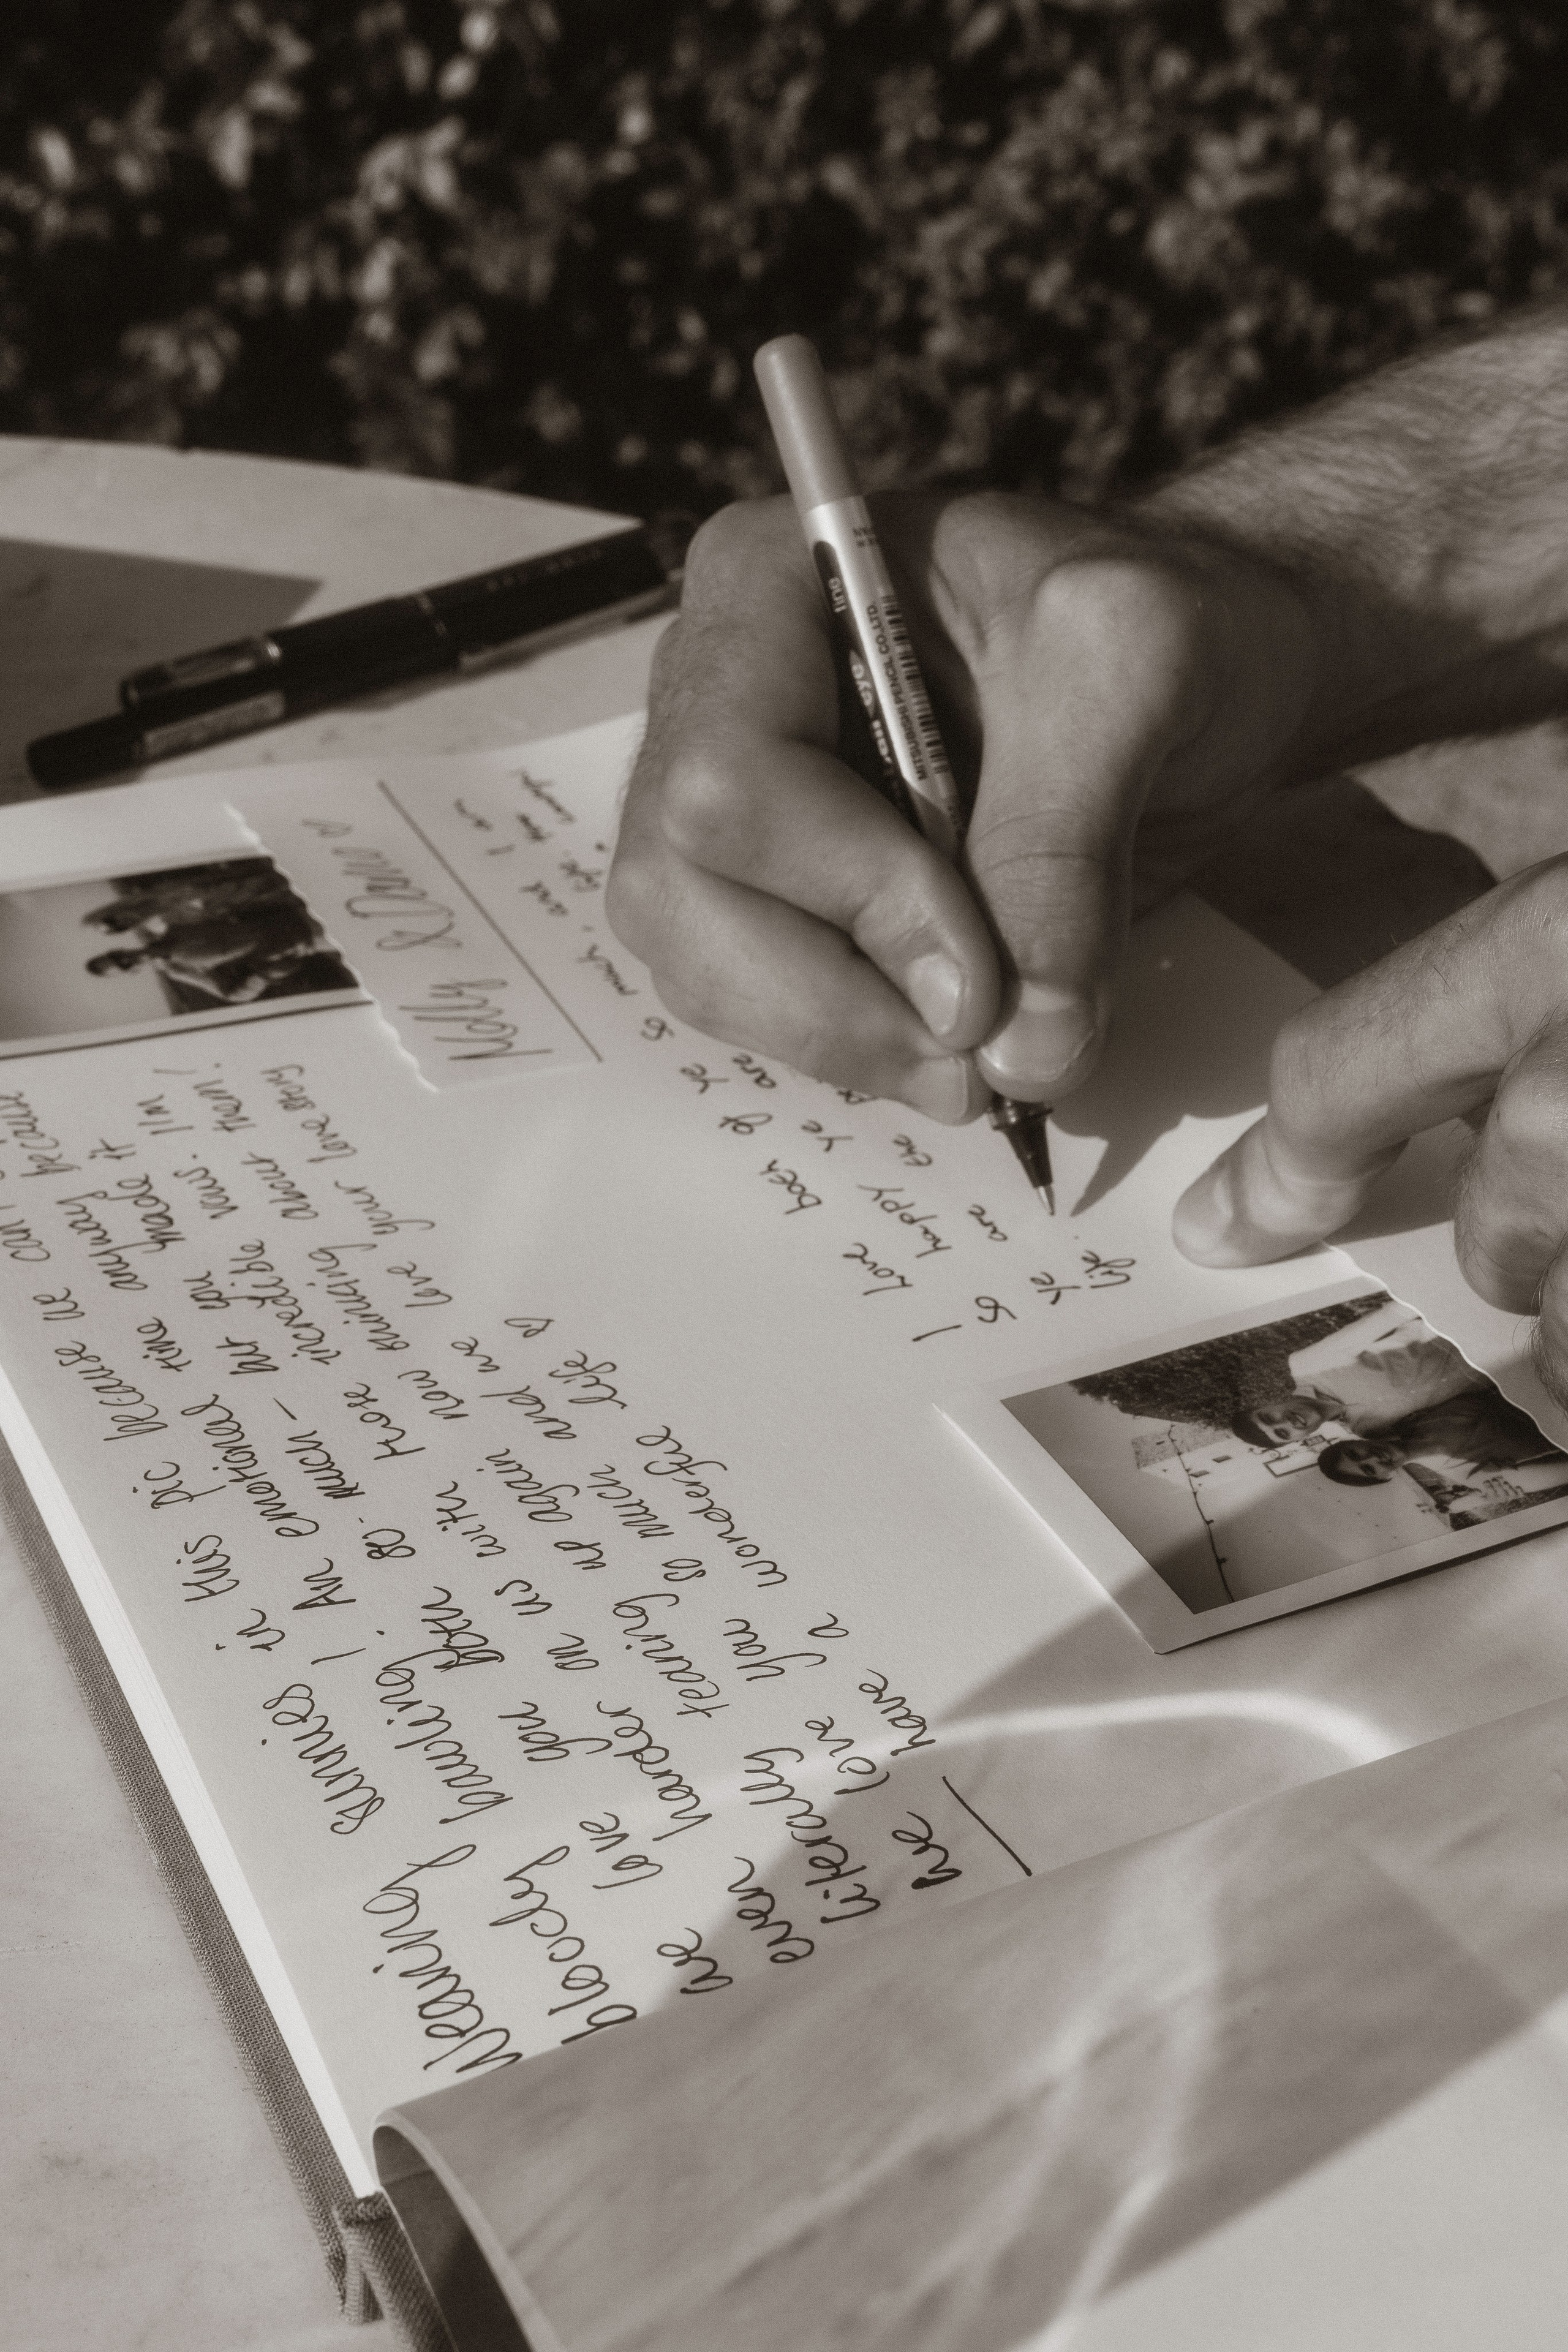 Wearing sunnies in this pic because we can't
bloody bawling! An emotional time anyway because
we love you both so much — but you made it
even harder on us with those incredible vows. I'm
literally tearing up again now thinking about them!
we love you so much and we love your love story
have a wonderful life ♡
Molly & Dano ♡
I love both of ye so much, and I am
so happy the ye are
ye are
life.
uni
eye
MITSUBISHI PENCIL CO., LTD.